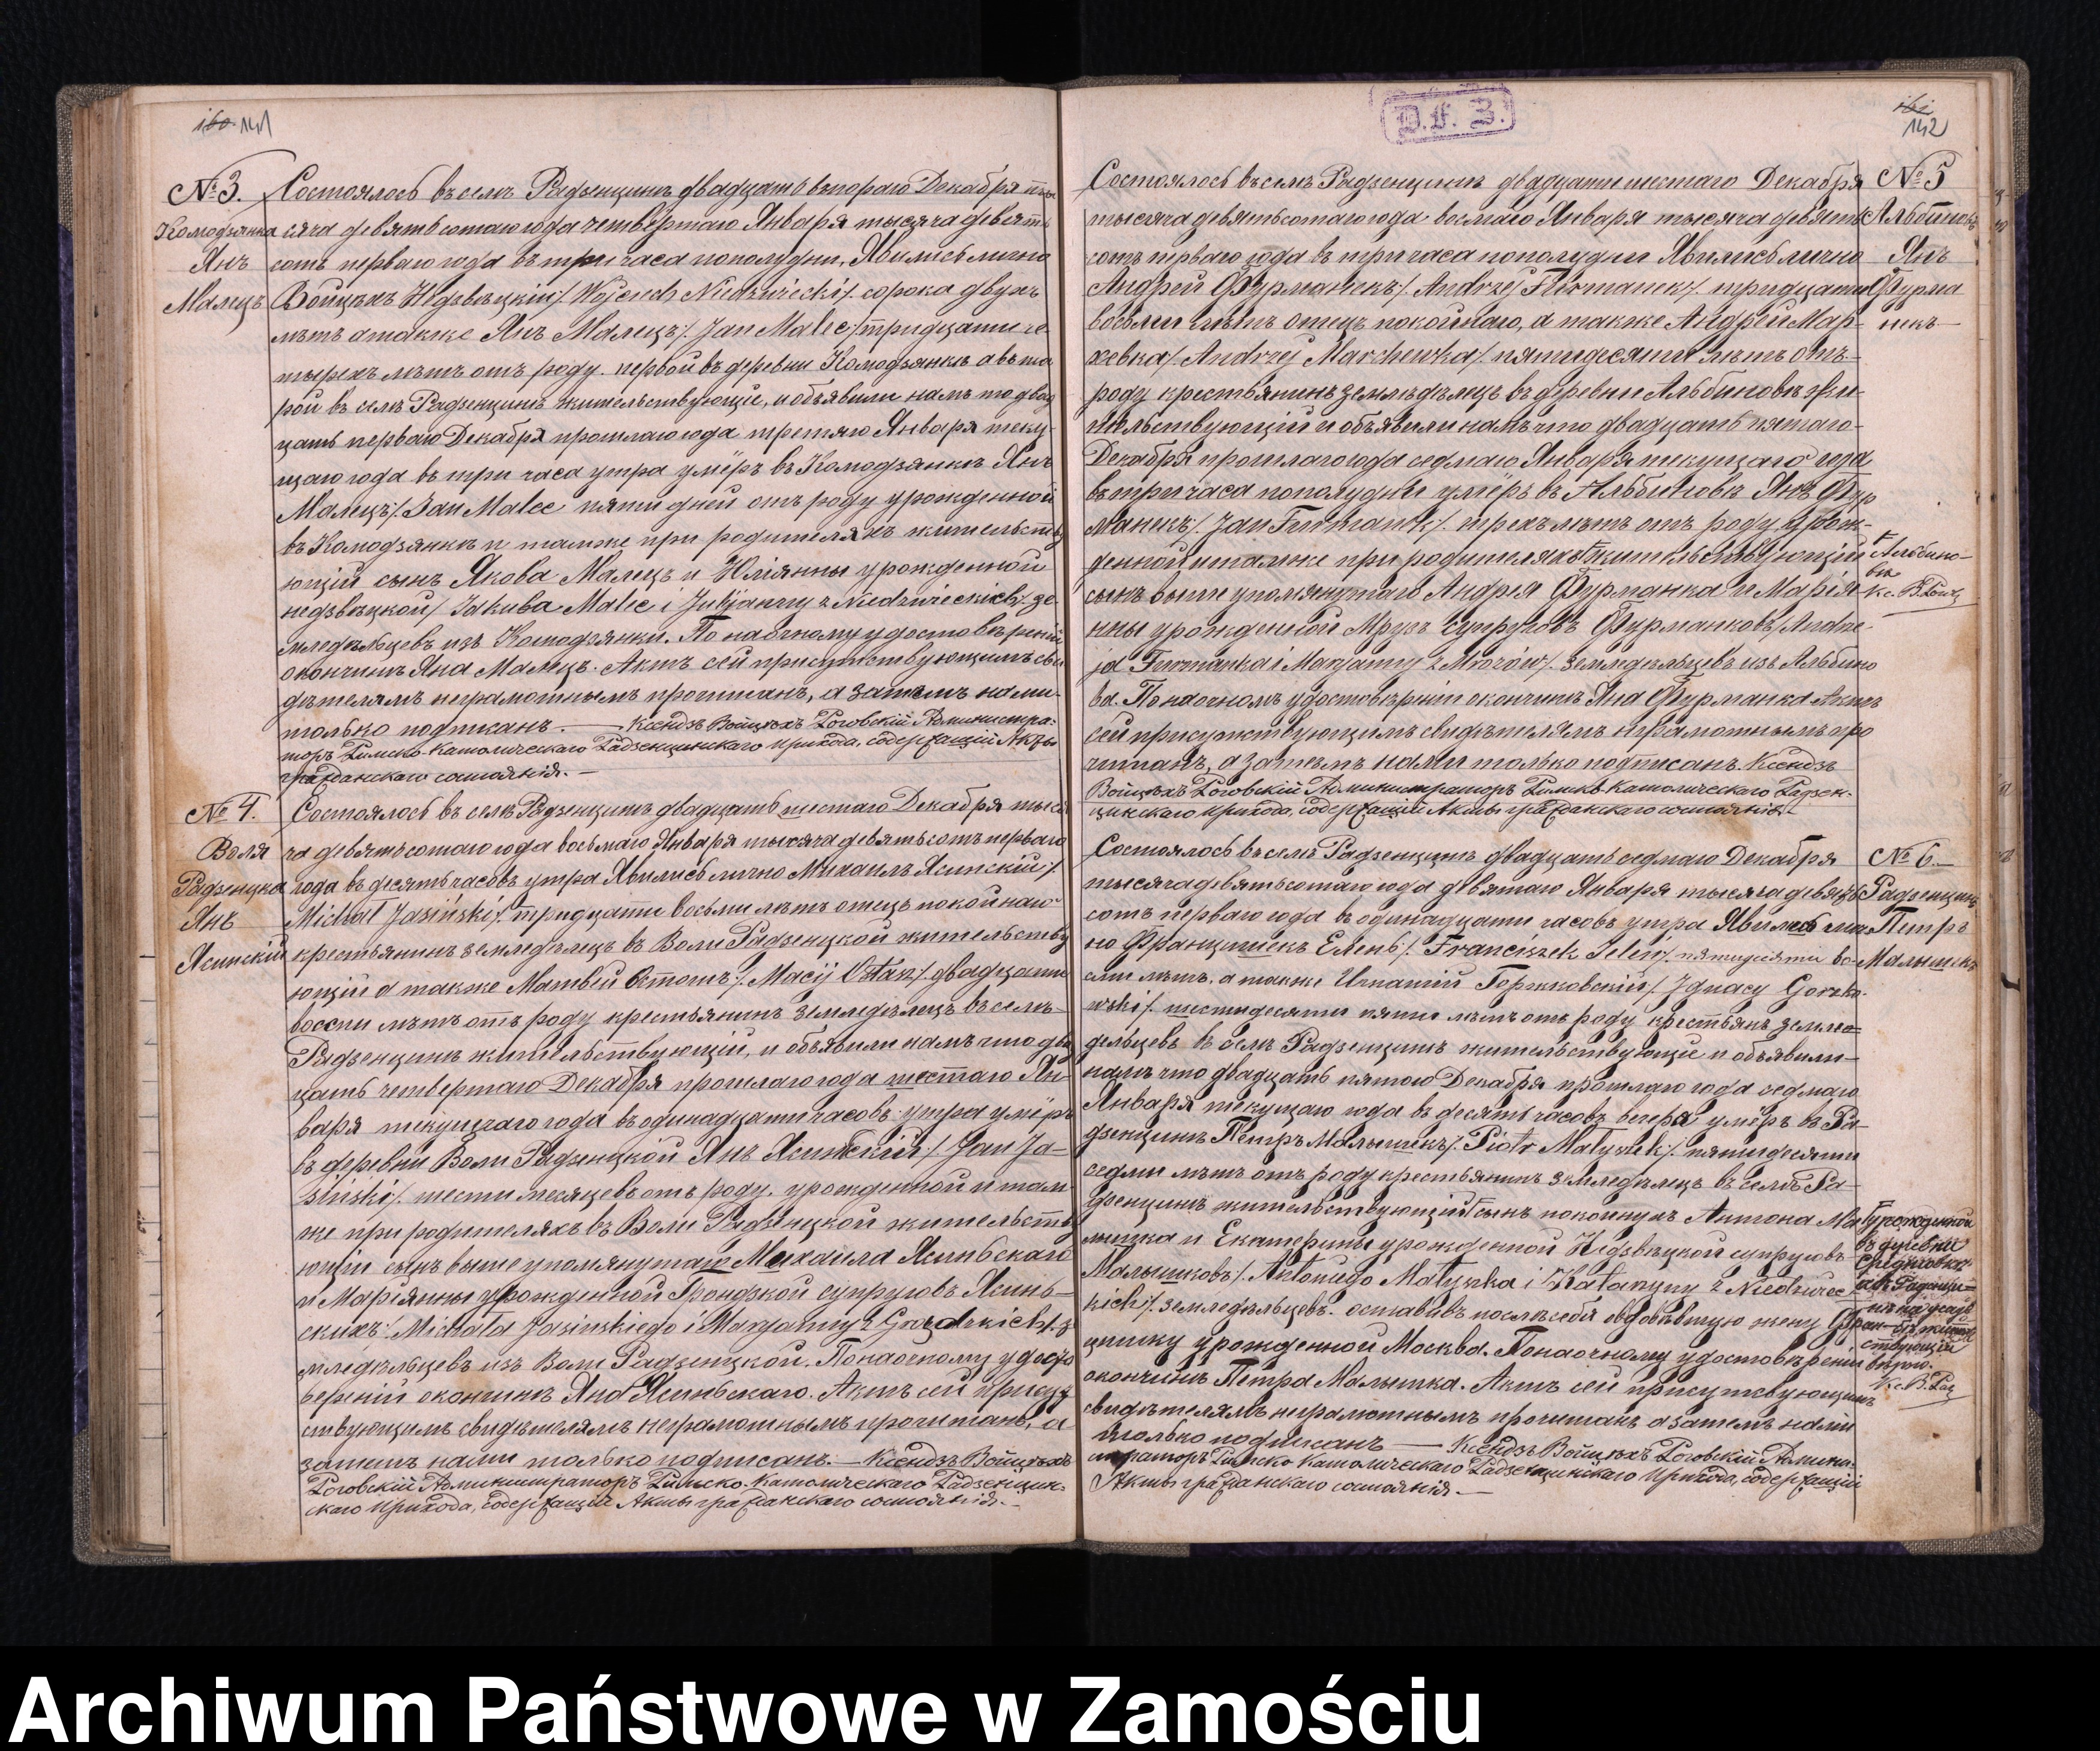 160 141
№ 3.
Комодзянка
Янъ
Малецъ
Состоялось въ селѣ Радзенцинѣ двадцать втораго Декабря ты-
сяча девятьсотаго года четвертаго Января тысяча девять
сотъ перваго года въ три часа пополудни. Явились лично
Войцѣхъ Недзвѣцкій /: Wojciech Niedzwiecki :/ сорока двухъ
лѣтъ а также Янъ Малецъ /: Jan Malec :/ тридцати че
тырехъ лѣтъ отъ роду. первый въ деревни Комодзянкѣ а вто
рой въ селѣ Радзенцинѣ жительствующіе, и объявили намъ что двад
цать перваго Декабря прошлаго года третяго Января теку-
щаго года въ три часа утра умёръ въ Комодзянкѣ Янъ
Малецъ /: Jan Malec пяти дней отъ роду урожденной
въ Комодзянкѣ и тамже при родителяхъ жительству
ющій сынъ Якова Малецъ и Юліянны урожденной
недзвѣцкой /: Jakuba Malec i Juljanny z Niedzwieckich :/ зе-
мледѣльцевъ изъ Комодзянки. По наочному удостовѣреніи
окончинѣ Яна Малецъ. Актъ сей присутствующимъ сви
дѣтелямъ неграмотнымъ прочитанъ, а затемъ нами
только подписанъ. — Ксендзъ Войцѣхъ Роговскій Администра-
торъ Римско-Католическаго Радзенцинскаго прихода, содержащій Акты
гражданскаго состоянія. —
№ 4.
Воля
Радзенцка
Янъ
Ясинскій
Состоялось въ селѣ Радзенцинѣ двадцать шестаго Декабря тыся
ча девятьсотаго года восьмаго Января тысяча девятьсотъ перваго
года въ десять часовъ утра Явились лично Михаилъ Ясинскій /:
Michał Jasiński :/ тридцати восьми лѣтъ отецъ покойнаго
крестьянинъ земледѣлецъ въ Воли Радзенцкой жительству
ющій а также Матвѣй /: Maciej :/ двадцати
восми лѣтъ отъ роду крестьянинъ земледѣлецъ въ селѣ
Радзенцинѣ жительствующій, и объявили намъ что два
цать четвертаго Декабря прошлаго года шестаго Ян-
варя текущаго года въ одинадцати часовъ утра умёръ
въ деревни Воли Радзенцкой Янъ Ясинскій /: Jan Ja-
siński :/ шести месяцевъ отъ роду. урожденной и там-
же при родителяхъ въ Воли Радзенцкой жительству
ющій сынъ выше упомянутаго Михаила Ясинскаго
и Маріянны урожденной Грондзкой супруговъ Ясинь-
скихъ /: Michała Jasinskiego i Maryanny z Grądzkich :/ з
мледѣльцевъ изъ Воли Радзенцкой. По наочному удосто
вереніи окончинѣ Яна Ясиньскаго. Актъ сей присут
ствующимъ свидѣтелямъ неграмотнымъ прочитанъ, а
затемъ нами только подписанъ. — Ксендзъ Войцѣхъ
Роговскій Администраторъ Римско-Католическаго Радзенцин-
скаго прихода, содержащій Акты гражданскаго состоянія. —
D. F. Z.
142
№ 5
Альбиновъ
Янъ
Фурма
некъ
Состоялось въ селѣ Радзенцинѣ двадцати шестаго Декабря
тысяча девятьсотаго года восмаго Января тысяча девять
сотъ перваго года въ три часа пополудни Явились лично
Андрей Фурманекъ /: Andrzej Furmanek :/ тридцати
восьми лѣтъ отецъ покойнаго, а также Андрей Мар-
хевка /: Andrzej Marchewka :/ пятидесяти лѣтъ отъ
роду крестьянинъ земледѣлецъ въ деревни Альбиновѣ жи-
тельствующій и объявили намъ что двадцать пятаго
Декабря прошлаго года седмаго Января текущаго года
въ три часа пополудни умёръ въ Альбиновѣ Янъ Фур
манекъ /: Jan Furmanek :/ трехъ лѣтъ отъ роду урож-
денной и тамже при родителяхъ жительствующій
сынъ выше упомянутаго Андрея Фурманка и Марія-
нны урожденной Мрузъ супруговъ Фурманковъ /: Andrze-
ja Furmanka i Maryanny z Mrozów :/ земледѣльцевъ изъ Альбино
ва. По наочномъ удостовѣреніи окончинѣ Яна Фурманка Актъ
сей присутствующимъ свидѣтелямъ неграмотнымъ про
читанъ, а затемъ нами только подписанъ. Ксендзъ
Войцѣхъ Роговскій Администраторъ Римско-Католическаго Радзен-
цинскаго прихода, содержащій Акты гражданскаго состоянія. —
Альбино-
вѣ
Кс. В. Рог
№ 6.
Радзенцинъ
Петръ
Малышекъ
Состоялось въ селѣ Радзенцинѣ двадцать седмаго Декабря
тысяча девятьсотаго года девятаго Января тысяча девять
сотъ перваго года въ одинадцати часовъ утра Явились лич
но Францишекъ Елень /: Franciszek Jeleń :/ пятидесяти во-
сми лѣтъ, а также Игнатій Горжковскій /: Ignacy Gorzko-
wski :/ шестидесяти пяти лѣтъ отъ роду крестьянъ земле-
дельцевъ въ селѣ Радзенцинѣ жительствующіе и объявили
намъ что двадцать пятаго Декабря прошлаго года седмаго
Января текущаго года въ десять часовъ вечера умёръ въ Ра-
дзенцинѣ Петръ Малышекъ /: Piotr Małyszek :/ пятидесяти
седми лѣтъ отъ роду крестьянинъ земледѣлецъ въ селѣ Ра-
дзенцинѣ жительствующій сынъ покойнухъ Антона Ма
лышка и Екатерины урожденной Недзвѣцкой супруговъ
Малышковъ /: Antoniego Małyszka i Katarzyny z Niedzwiec
kich :/ земледѣльцевъ. оставивъ послѣ себя овдовѣвшую жену Фран-
цишку урожденной Москва. По наочному удостовѣреніи
окончинѣ Петра Малышка. Актъ сей присутствующимъ
свидѣтелямъ неграмотнымъ прочитанъ а затемъ нами
только подписанъ — Ксендзъ Войцѣхъ Роговскій Админи-
страторъ Римско Католическаго Радзенцинскаго прихода, содержащій
Акты гражданскаго состоянія. —
урожденной
въ деревни
Кс. В. Рог
Archiwum Państwowe w Zamościu